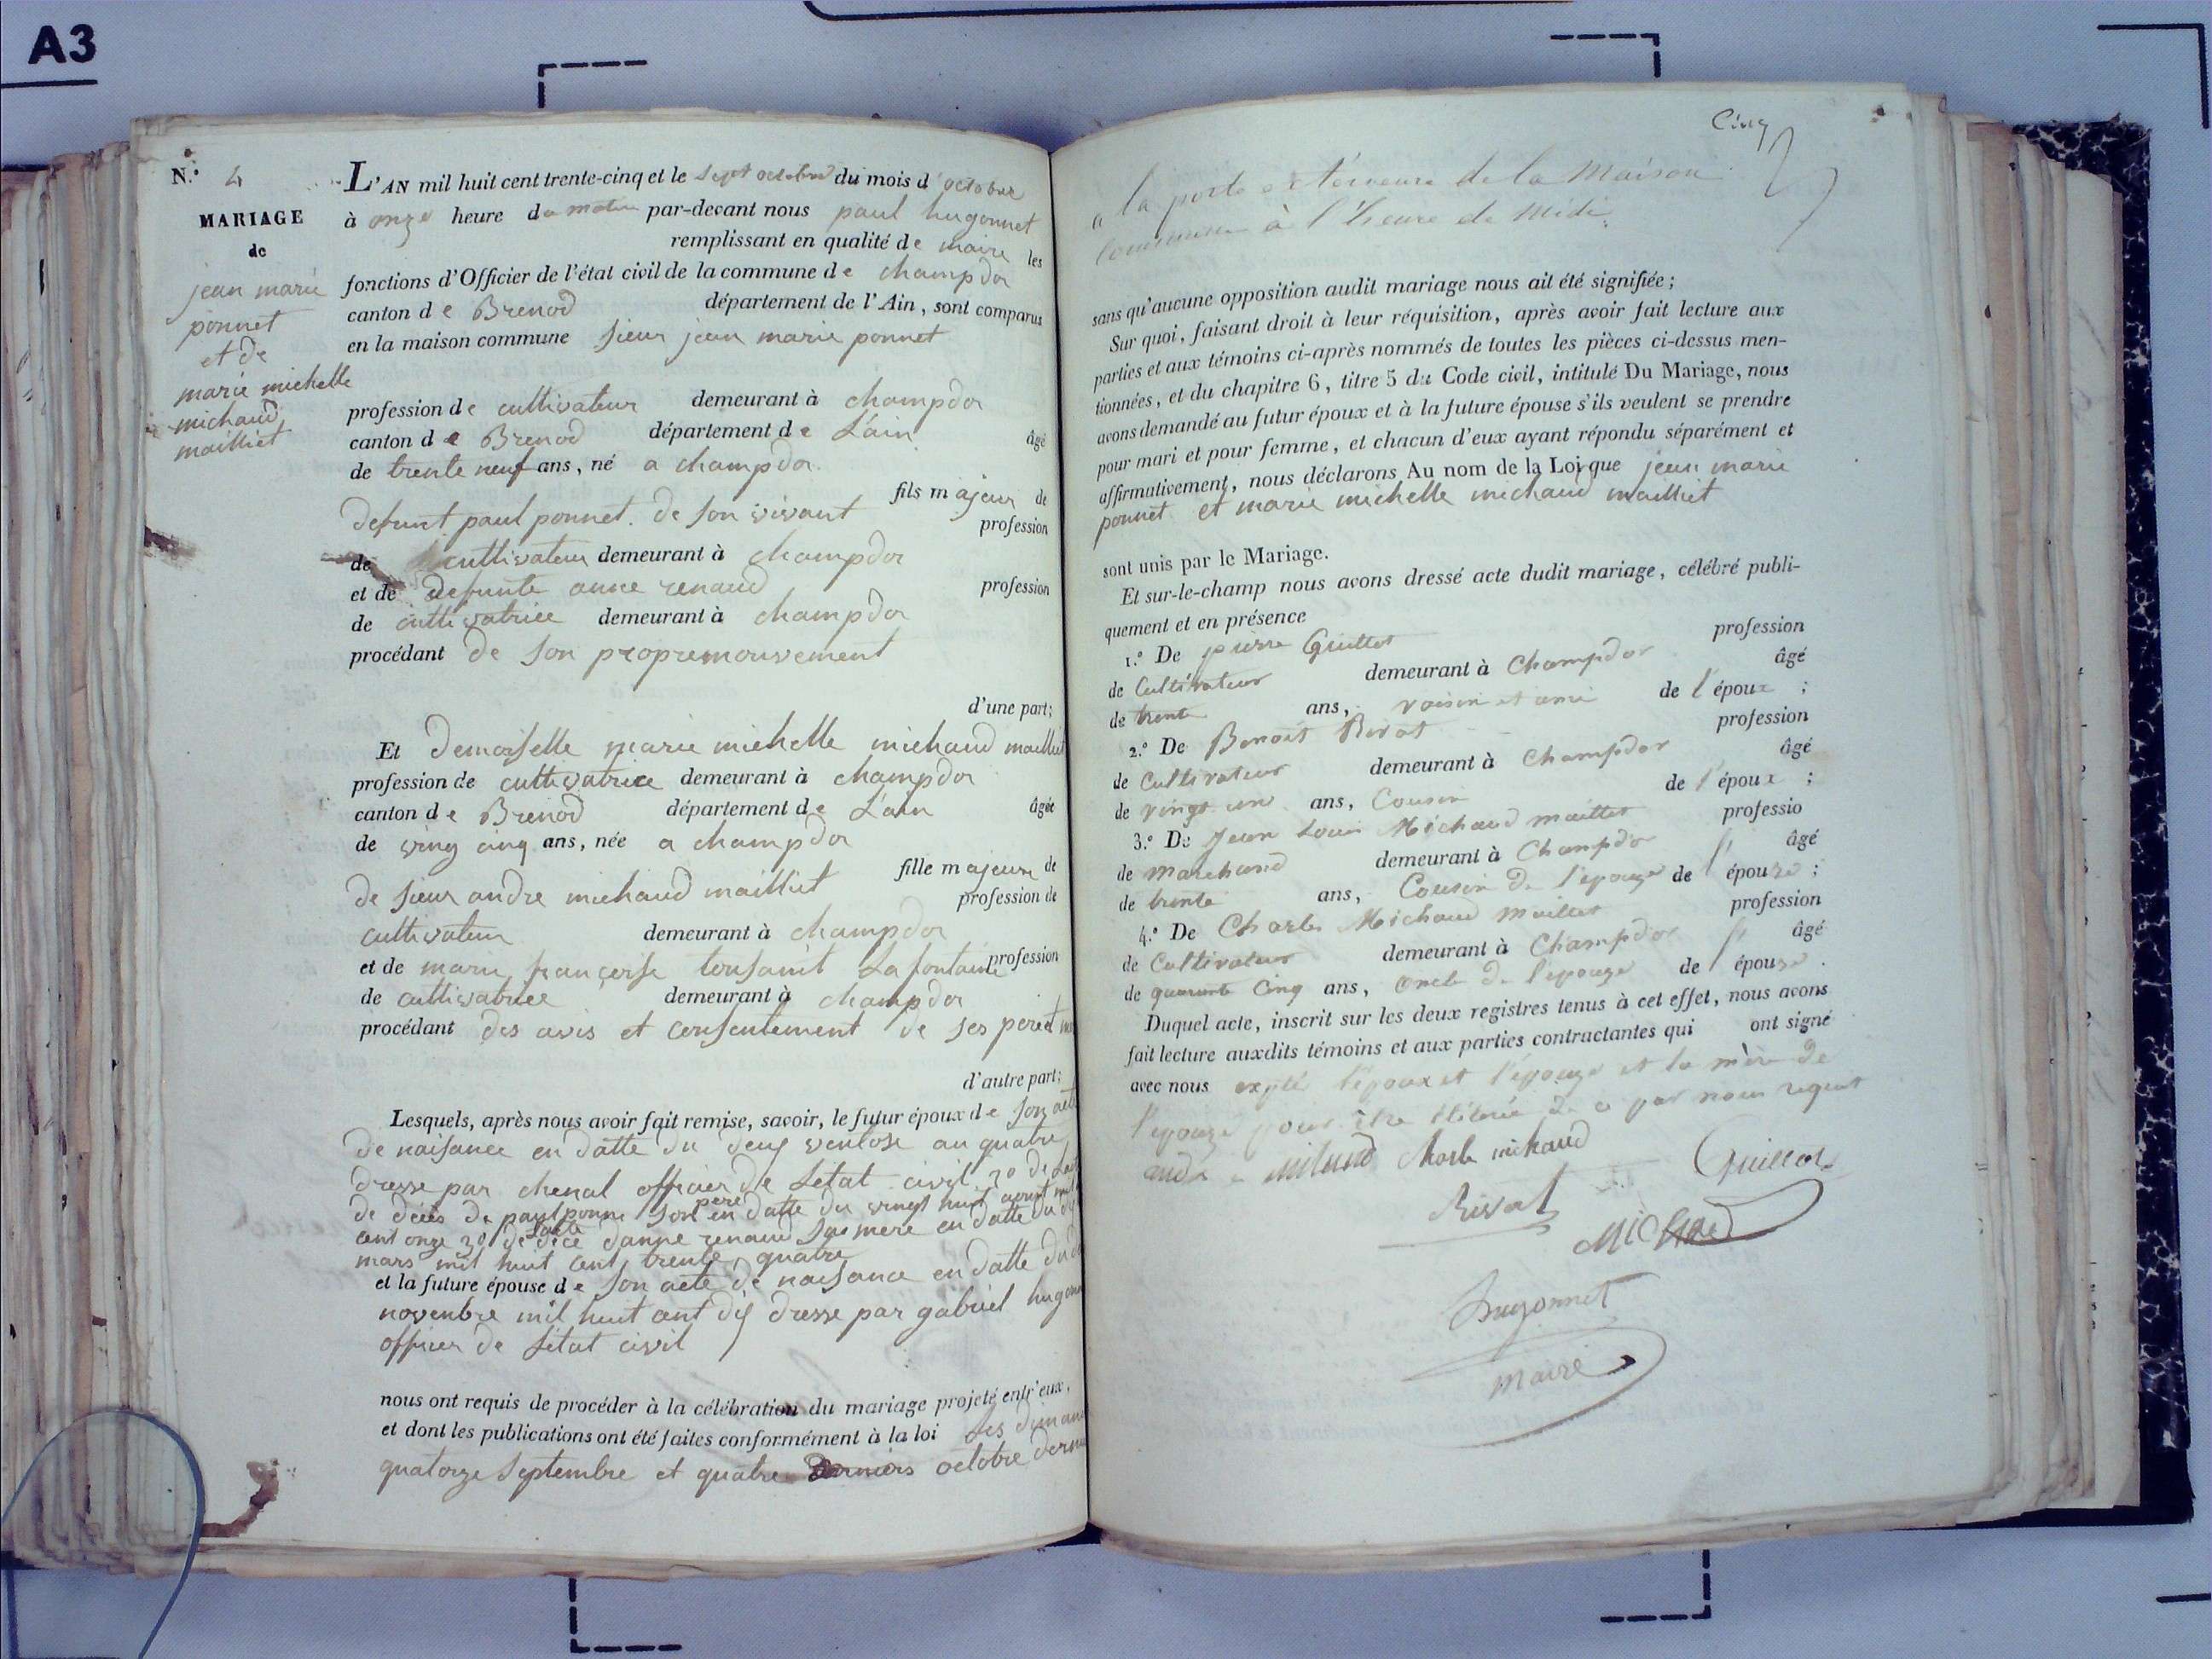 A3
N.° 4
MARIAGE
de
jean marie
ponnet
et de
marie michelle
michaud
maillet
L'AN mil huit cent trente-cinq et le sept octobre du mois d'octobre
à onze heure du matin par-devant nous paul hugonnet
remplissant en qualité de maire les
fonctions d'Officier de l'état civil de la commune de champdor
canton de Brenod département de l'Ain, sont comparus
en la maison commune sieur jean marie ponnet
profession de cultivateur demeurant à champdor
canton de Brenod département de L'ain âgé
de trente neuf ans, né a champdor
fils majeur de
defunt paul ponnet. de son vivant profession
de cultivateur demeurant à champdor
et de defunte anne renaud profession
de cultivatrice demeurant à champdor
procédant de son propremouvement
d'une part;
Et demoiselle marie michelle michaud maillet
profession de cultivatrice demeurant à champdor
canton de Brenod département de L'ain âgée
de ving cinq ans, née a champdor
fille majeure de
de sieur andre michaud maillet profession de
cultivateur demeurant à champdor
et de marie françoise tousaint Lafontaine profession
de cultivatrice demeurant à champdor
procédant des avis et consentement de ses pere et
d'autre part;
Lesquels, après nous avoir fait remise, savoir, le futur époux de son acte
de naisance en datte du deux ventose an quatre
dresse par chenal officier de Letat civil 20 de
de déces de paul ponne son pere en datte du vingt huit
cent onze 30 de Lacte de déce danne renaud sa mere en datte du
mars mil huit cent trente quatre
et la future épouse de son acte de naisance en datte du
novenbre mil huit cent dix dresse par gabriel
officier de Letat civil
nous ont requis de procéder à la célébration du mariage projeté entr'eux,
et dont les publications ont été faites conformément à la loi Les
quatorze septembre et quatre octobre
Cinq
a la porte exterieure de la Maison
commune à l'heure de Midi.
sans qu'aucune opposition audit mariage nous ait été signifiée;
Sur quoi, faisant droit à leur réquisition, après avoir fait lecture aux
parties et aux témoins ci-après nommés de toutes les pièces ci-dessus men-
tionnées, et du chapitre 6, titre 5 du Code civil, intitulé Du Mariage, nous
avons demandé au futur époux et à la future épouse s'ils veulent se prendre
pour mari et pour femme, et chacun d'eux ayant répondu séparément et
affirmativement, nous déclarons Au nom de la Loi que jean marie
ponnet et marie michelle michaud maillet
sont unis par le Mariage.
Et sur-le-champ nous avons dressé acte dudit mariage, célébré publi-
quement et en présence
1.° De pierre Guillot profession
de Cultivateur demeurant à Champdor âgé
de trente ans, voisin et ami de l'époux ;
2.° De Benoit Rivat profession
de Cultivateur demeurant à Champdor âgé
de vingt un ans, Cousin de l'époux ;
3.° De Jean Louis Michaud maillet professio
de marchand demeurant à Champdor âgé
de trente ans, Cousin de l'epouze de l'épouse ;
4.° De Charles Michaud maillet profession
de Cultivateur demeurant à Champdor âgé
de quarante Cinq ans, oncle de l'epouze de l'épouse.
Duquel acte, inscrit sur les deux registres tenus à cet effet, nous avons
fait lecture auxdits témoins et aux parties contractantes qui ont signé
avec nous l'époux et l'épouze et la mère de
l'epouze pour être de ce par nous requit
Charle michaud
Guillot
Rivat
MICHAUD
hugonnet
maire